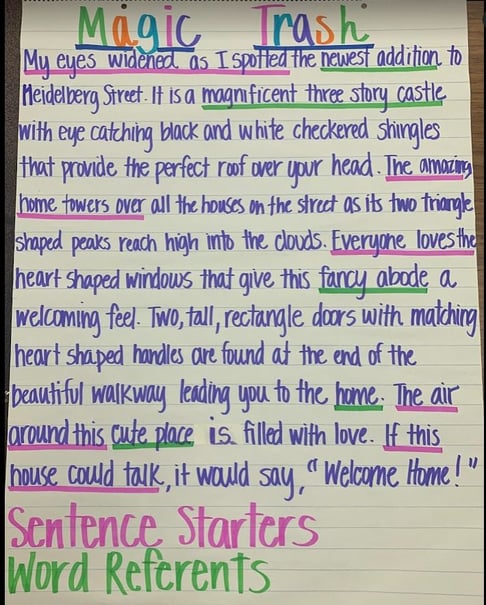 Magic Trash
My eyes widened as I spotted the newest addition to
Heidelberg Street. It is a magnificent three story castle
with eye catching black and white checkered shingles
that provide the perfect roof over your head. The amazing
home towers over all the houses on the street as its two triangle
shaped peaks reach high into the clouds. Everyone loves the
heart shaped windows that give this fancy abode a
welcoming feel. Two, tall, rectangle doors with matching
heart shaped handles are found at the end of the
beautiful walkway leading you to the home. The air
around this cute place is filled with love. If this
house could talk, it would say, "Welcome Home!"
Sentence Starters
Word Referents